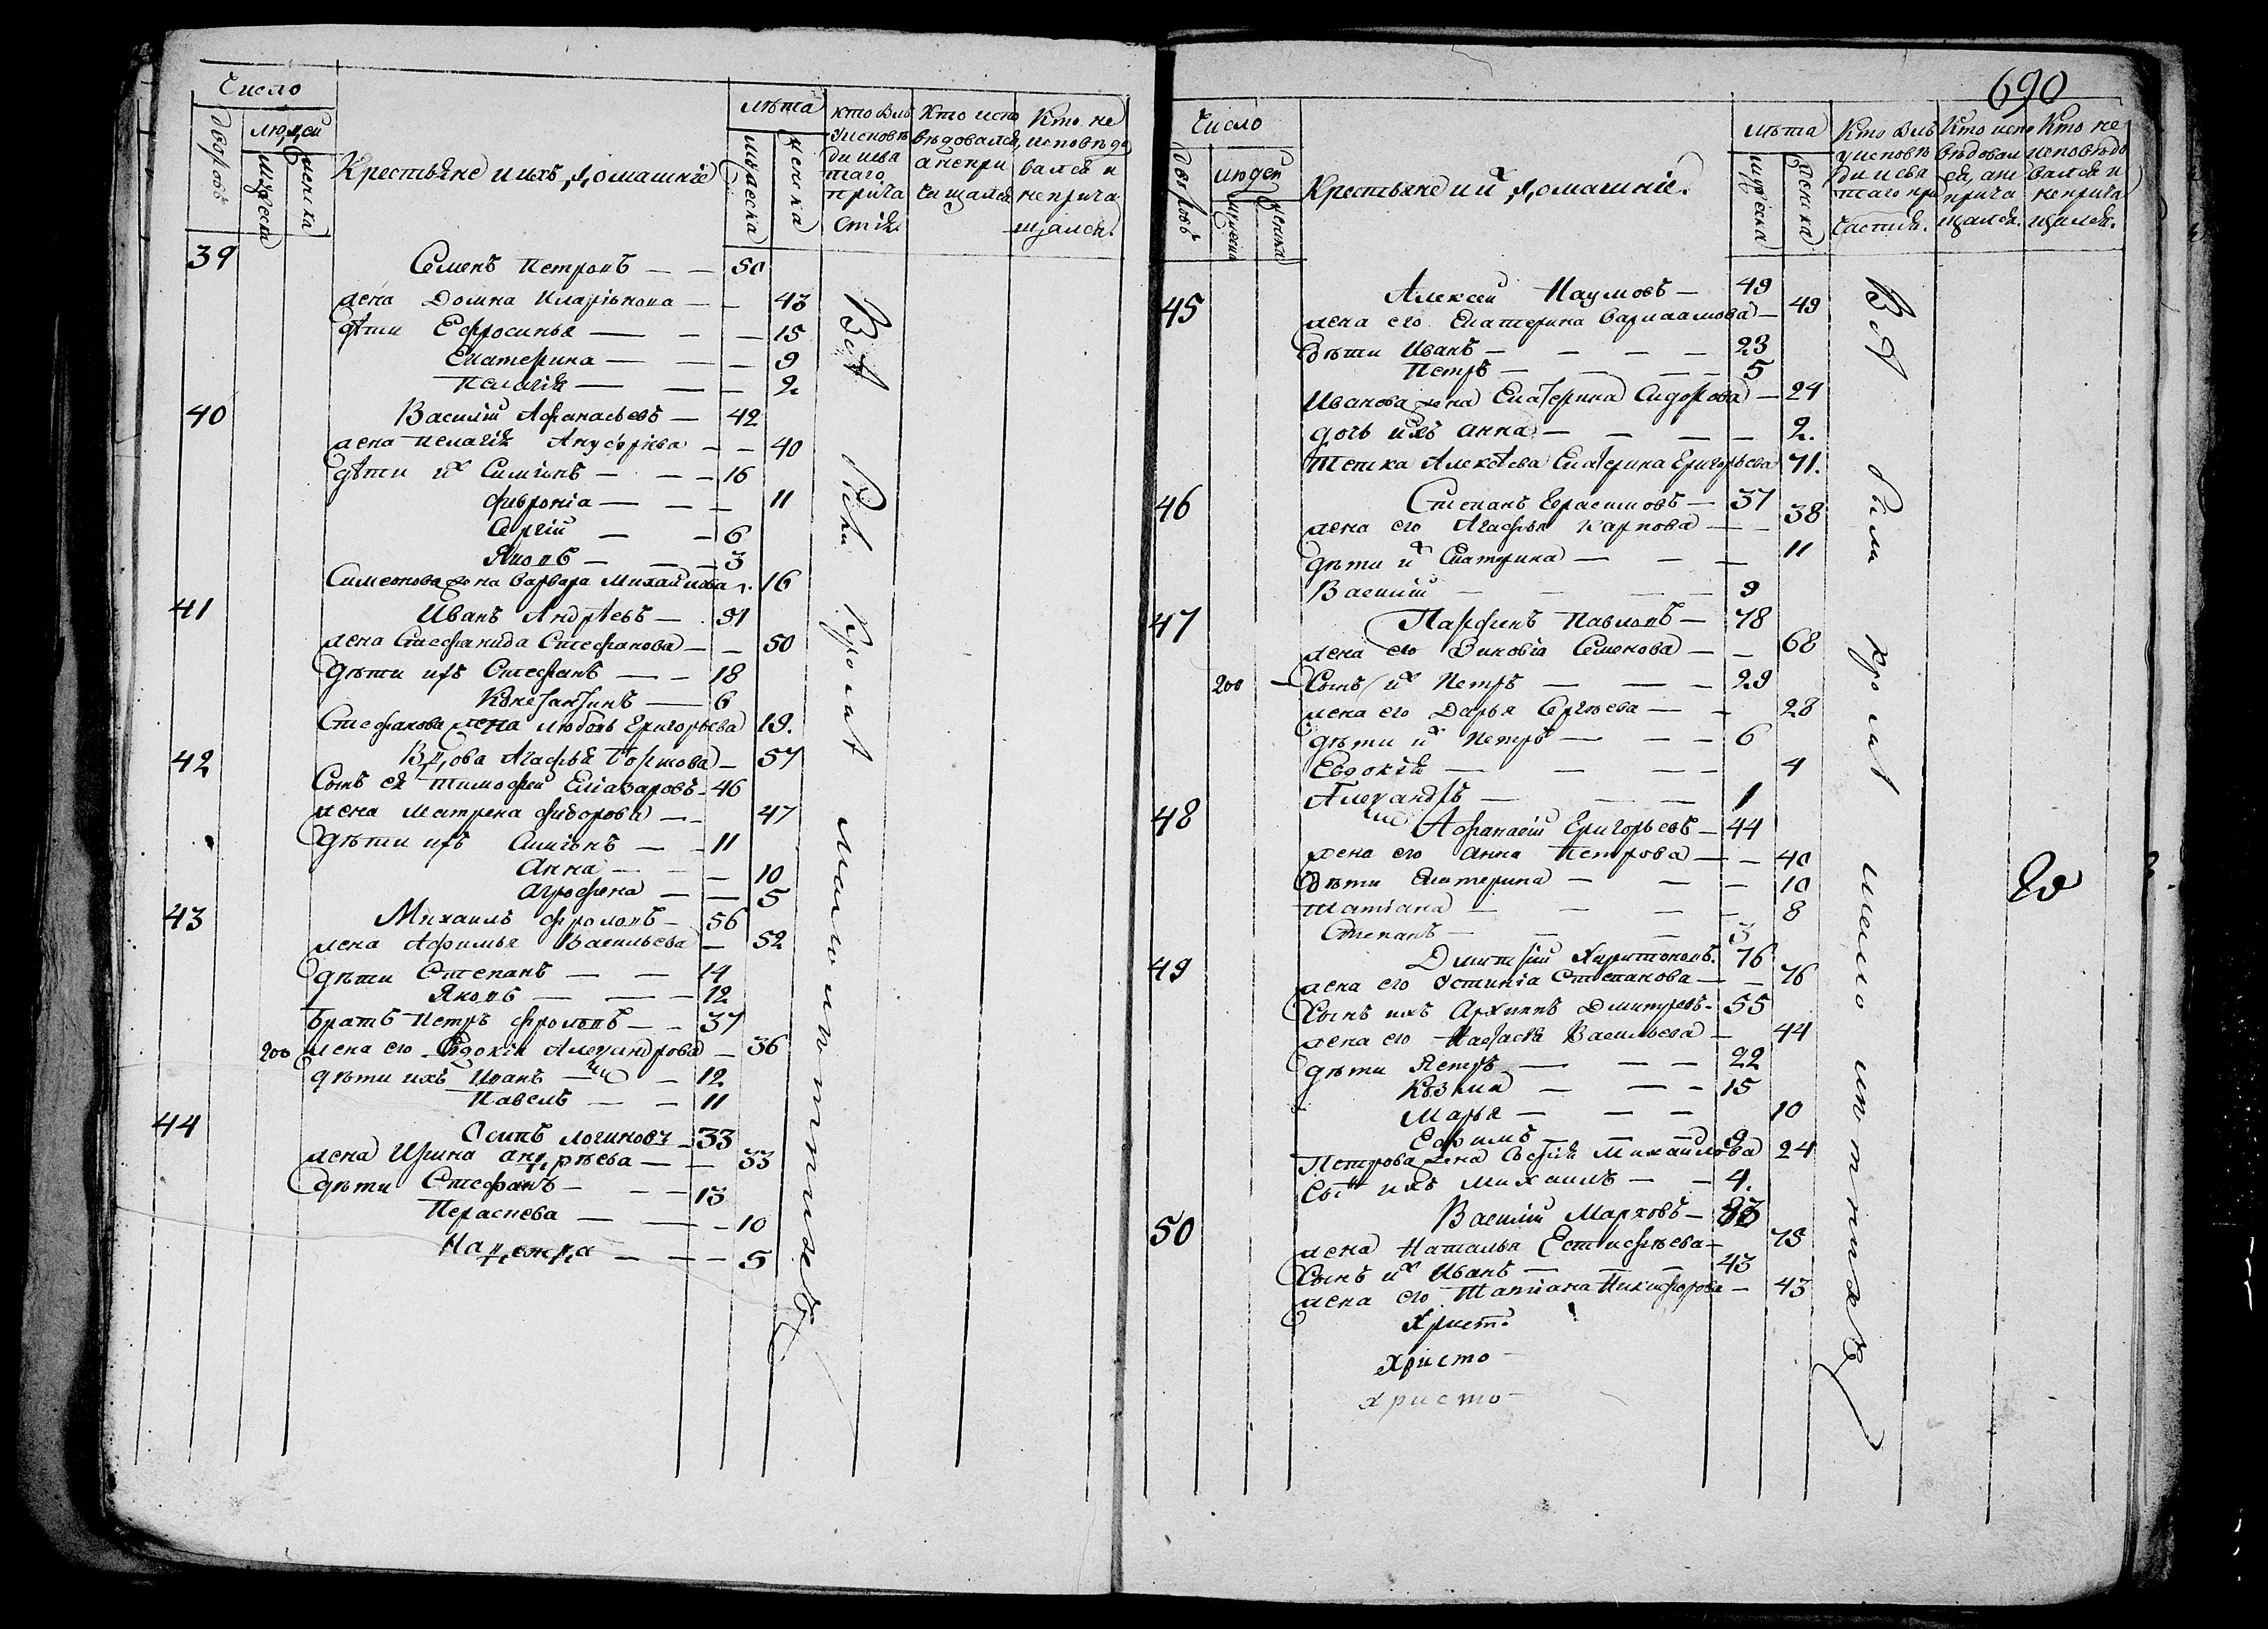 Число
дворовъ
людей
мужеска
женска
Крестьяне и ихъ домашніе
лѣта
мужеска
женска
кто былъ
у исповѣ
ди и свя
таго
прича
стія
Кто испо
вѣдовался,
а непри
чащался
Кто не
исповѣдо
вался и
не прича
щался.
39 Семенъ Петровъ — — 50
жена Домна Иларіонова — — 43
дѣти Ефросинья — — — 15
Екатерина — — — 9
Пелагія — — — 2
40 Василій Афанасьевъ — 42
жена Пелагія Ануфріева — — 40
дѣти их Симеонъ — — — 16
Февронія — — — 11
Сергій — — 6
Яковъ — — — 3
Симеонова жена Варвара Михайлова 16
41 Иванъ Андрѣевъ — 51
жена Стефанида Стефанова — — 50
дѣти ихъ Стефанъ — — — 18
Константинъ — 6
Стефанова жена Любовь Григорьева 19.
42 Вдова Агафья — 57
Сынъ ея Тимофей Еліазаровъ - 46
жена Матрена Фидорова — — 47
дѣти ихъ Симеонъ — — 11
Анна — — — 10
Агрофена — — 5
43 Михаилъ Фроловъ — 56
жена Афимья Васильева — 52
дѣти Степанъ — — 14
Яковъ — — — 12
братъ Петръ Фроловъ — — 37
200 жена его Евдокія Александрова — 36
дѣти ихъ Иванъ — — 12
Павелъ — — 11
44 Осипъ Логиновъ — 33
жена Ирина Андрѣева — — 33
дѣти Стефанъ — — — 13
Параскева — — — 10
Надежда — — — 5
Всѣ
690
Число
дворовъ
людей
мужеска
женска
Крестьяне и их домашніе.
лѣта
мужеска
женска
Кто былъ
у исповѣ
ди и свя
таго при
частія.
Кто испо
вѣдовал
ся, а не
прича
щался.
Кто не
исповѣдо
вался и
не прича
щался.
45 Алексей Наумовъ — 49
жена его Екатерина Варлаамова — 49
дѣти Иванъ — — — — 23
Петръ — — — 5
Иванова жена Екатерина Сидорова — 24
дочь ихъ Анна — — — — 2.
Тетка Алексѣева Екатерина Григорьева 71.
46 Степанъ Герасимовъ — 37
жена его Агафья Карпова — — 38
дѣти их Екатерина — — — 11
Василій — — — — 9
47 Парфенъ Павловъ — 78
жена его Зиновія Семенова — — 68
200 — Сынъ их Петръ — — — 29
жена его Дарья Сергѣева — — 28
дѣти их Петръ — — — 6
Евдокія — — — — 4
Александръ — — — 1
48 Афанасій Григорьевъ — 44
жена его Анна Петрова — — 40
дѣти Екатерина — — — 10
Татіана — — — — 8
Степанъ — — — 3
49 Дмитрій Харитоновъ. 76
жена его Устинія Степанова — — 76
Сынъ ихъ Архипъ Дмитревъ - 55
жена его Настасія Васильева — 44
дѣти Петръ — — — 22
Козма — — — 15
Марья — — — 10
Ефимъ — — — 9
Петрова жена Софія Михайлова 24
Сынъ ихъ Михаилъ — — 4.
50 Василій Марковъ — 83
жена Наталья Естифѣева — 75
Сынъ их Иванъ — — — 43
жена его Татіана Никифорова — 43
Христ.
Христо-
Христо-
Всѣ